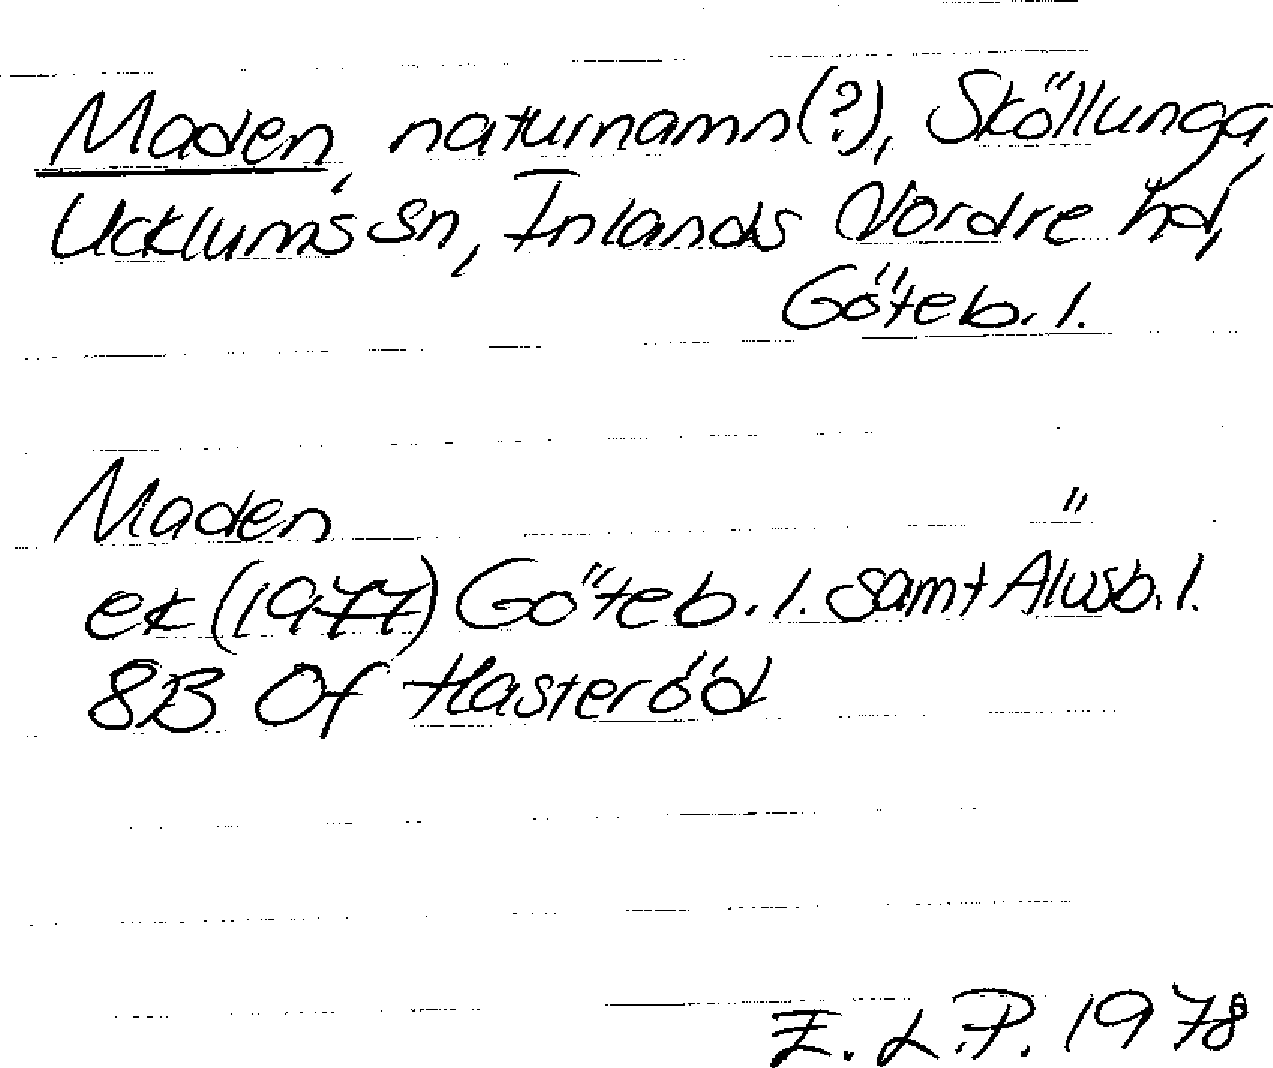 Maden, naturnamn(?), Sköllunga,
Ucklums sn, Inlands Nordre hd,
Göteb. l.
Maden "
ek (1977) Göteb. l. samt Älvsb. l.
8B 0f Hasteröd
E. L. P. 1978